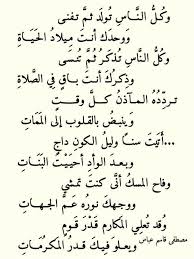 وكُلُّ النَّاسِ تُولَدُ ثمَّ تَفنى
ووحدكَ أنتَ ميلادُ الحَيَاةِ
وكُلُّ النَّاسِ تُذكَرُ ثُمَّ تُنسَى
وذِكرُكَ أنتَ باقٍ في الصَّلاةِ
تردِّدُهُ المآذنُ كلَّ وقتٍ
وينبضُ بالقلوبِ إلى المَمَاتِ
...أتَيتَ سناً وليلُ الكونِ داجٍ
وبعدَ الوأدِ أحيَيْتَ البَنَاتِ
وفاحَ المسكُ أنَّى كنتَ تمشي
ووجهكَ نورُهُ عَمَّ الجهاتِ
وقد تُعلي المكارمُ قَدْرَ قومٍ
ويعلو فيكَ قدرُ المكرُمَاتِ
مصطفى قاسم عباس